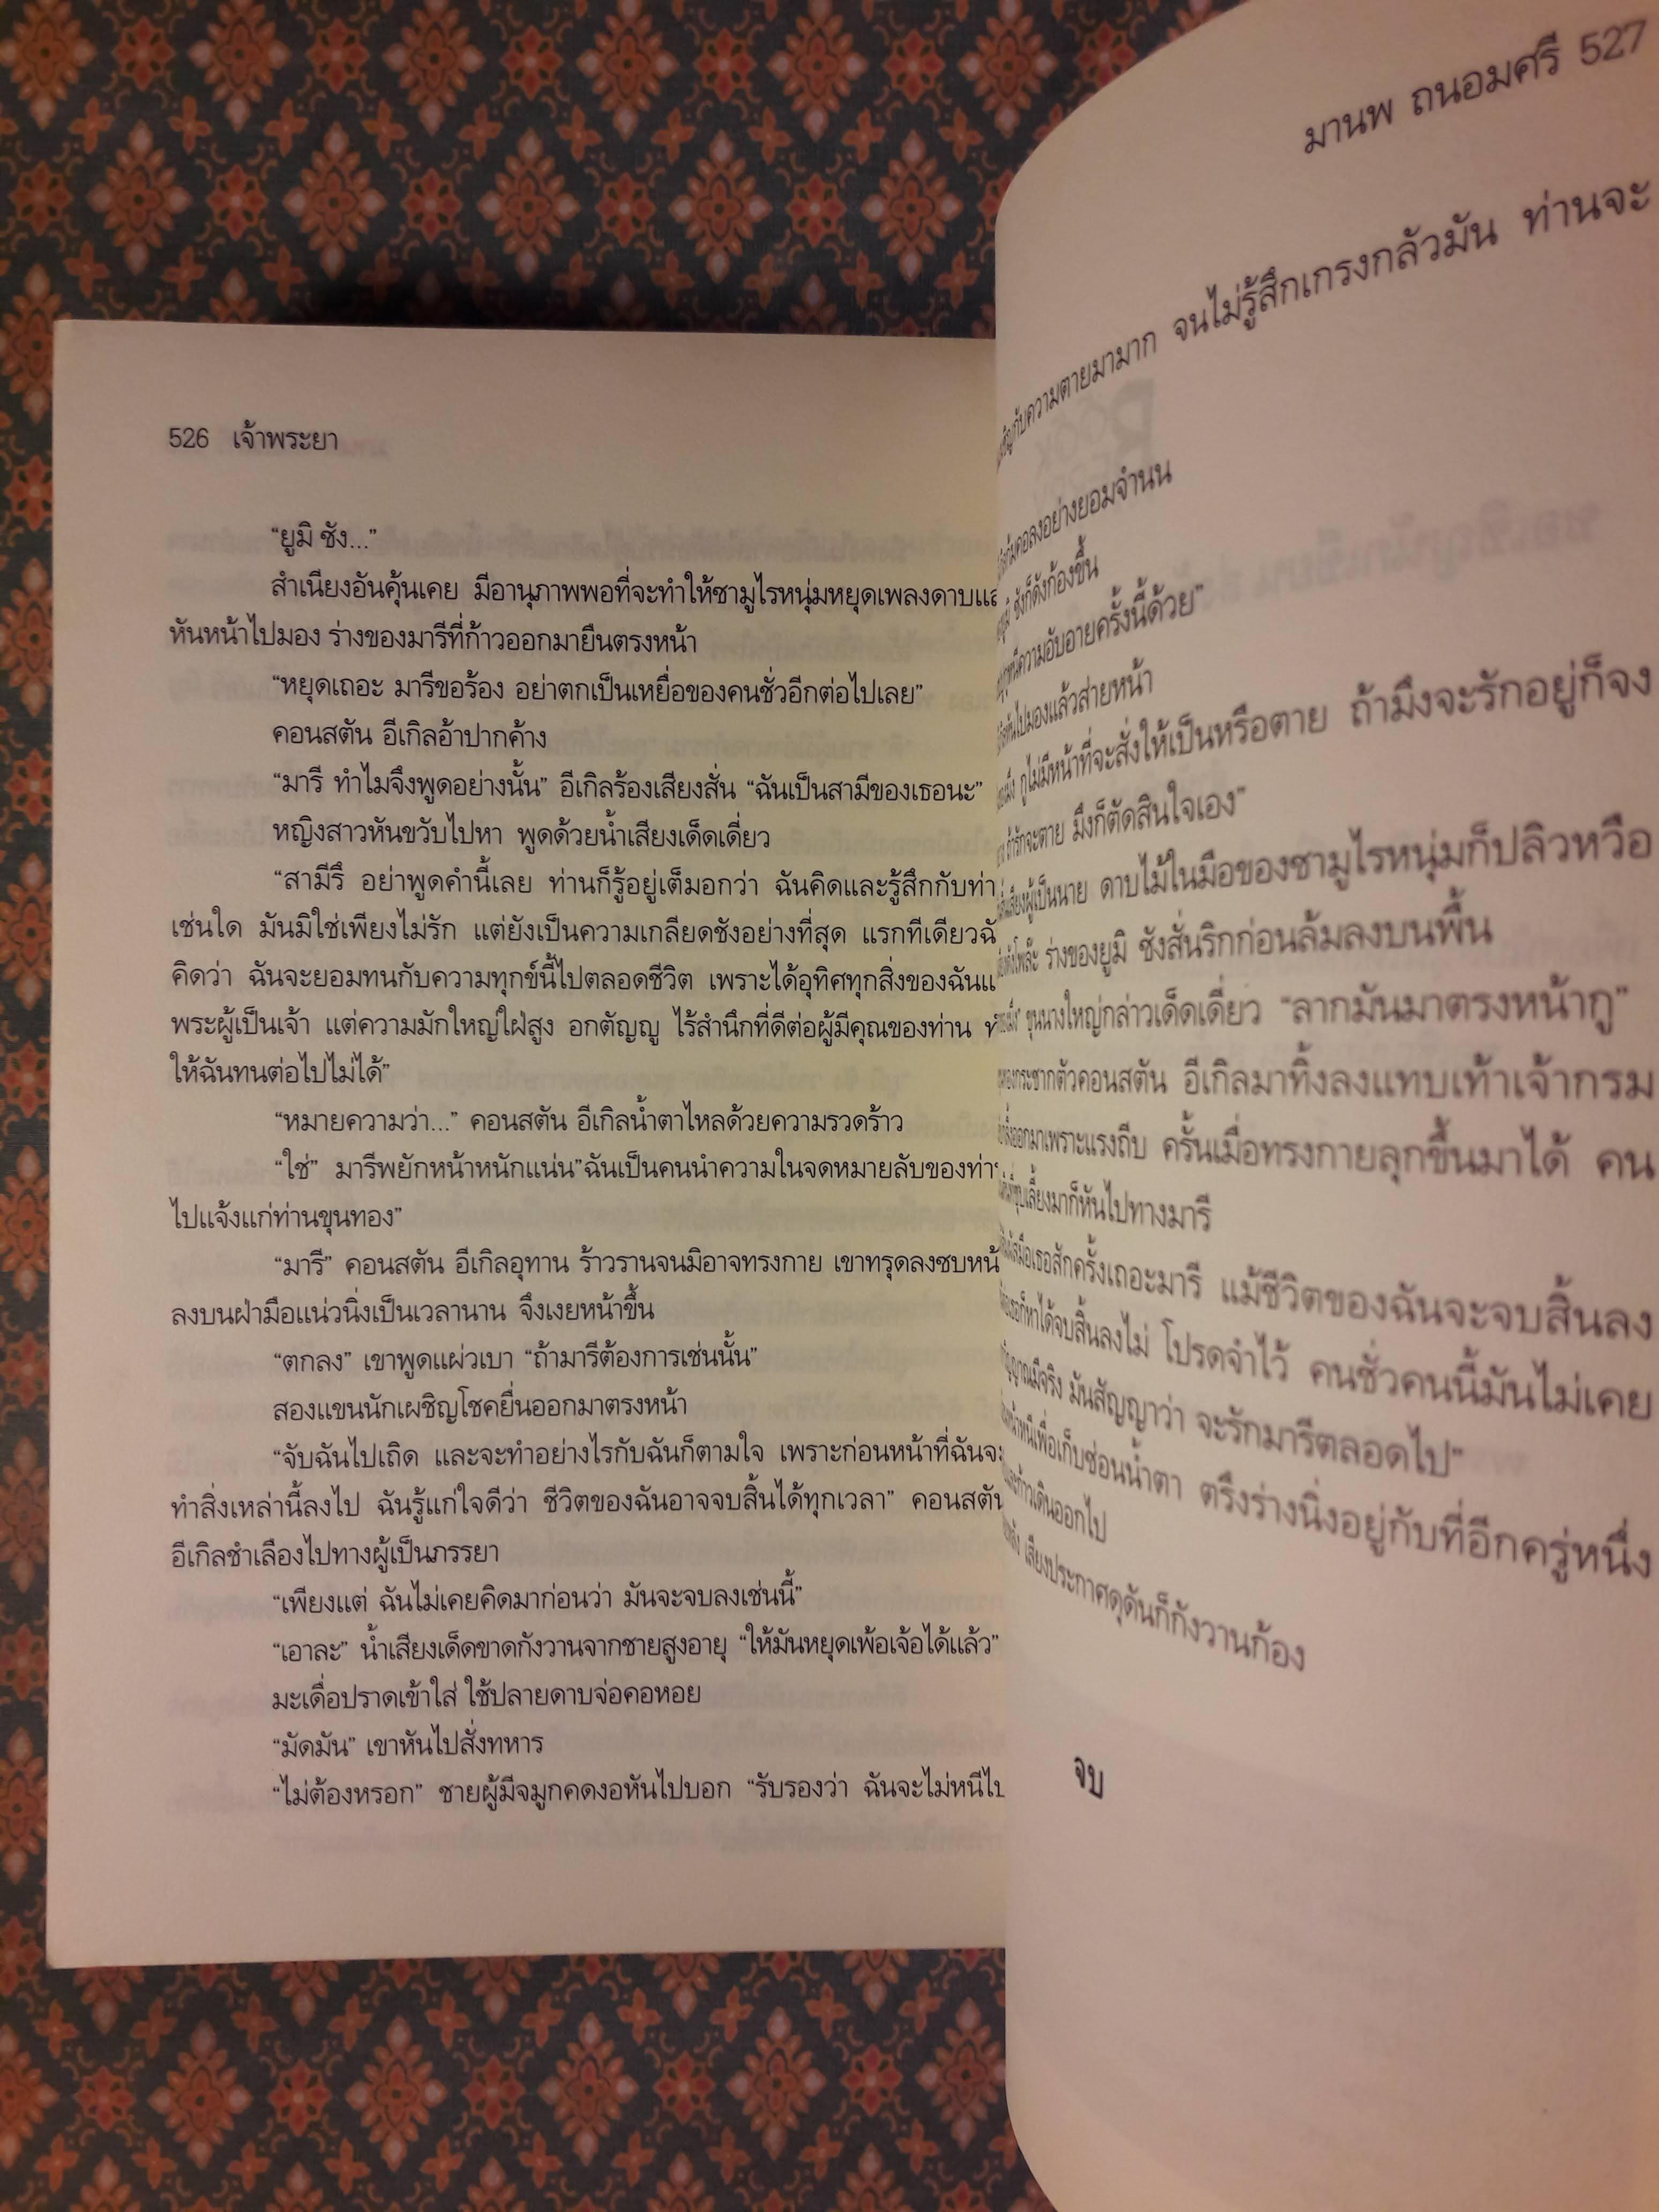 526 เจ้าพระยา
“ยูมิ ซัง...”
สำเนียงอันคุ้นเคย มีอานุภาพพอที่จะทำให้ซามูไรหนุ่มหยุดเพลงดาบ
หันหน้าไปมอง ร่างของมารีที่ก้าวออกมายืนตรงหน้า
“หยุดเถอะ มารีขอร้อง อย่าตกเป็นเหยื่อของคนชั่วอีกต่อไปเลย”
คอนสตัน อีเกิลอ้าปากค้าง
“มารี ทำไมจึงพูดอย่างนั้น” อีเกิลร้องเสียงสั่น “ฉันเป็นสามีของเธอนะ”
หญิงสาวหันขวับไปหา พูดด้วยน้ำเสียงเด็ดเดี่ยว
“สามีรึ อย่าพูดคำนี้เลย ท่านก็รู้อยู่เต็มอกว่า ฉันคิดและรู้สึกกับ
เช่นใด มันมิใช่เพียงไม่รัก แต่ยังเป็นความเกลียดชังอย่างที่สุด แรกทีเดียว
คิดว่า ฉันจะยอมทนกับความทุกข์นี้ไปตลอดชีวิต เพราะได้อุทิศทุกสิ่งของฉัน
พระผู้เป็นเจ้า แต่ความมักใหญ่ใฝ่สูง อกตัญญู ไร้สำนึกที่ดีต่อผู้มีคุณของท่าน
ให้ฉันทนต่อไปไม่ได้”
“หมายความว่า...” คอนสตัน อีเกิลน้ำตาไหลด้วยความรวดร้าว
“ใช่” มารีพยักหน้าหนักแน่น”ฉันเป็นคนนำความในจดหมายลับของ
ไปแจ้งแก่ท่านขุนทอง”
“มารี” คอนสตัน อีเกิลอุทาน ร้าวรานจนมิอาจทรงกาย เขาทรุดลงซบ
ลงบนฝ่ามือแน่วนิ่งเป็นเวลานาน จึงเงยหน้าขึ้น
“ตกลง” เขาพูดแผ่วเบา “ถ้ามารีต้องการเช่นนั้น”
สองแขนนักเผชิญโชคยื่นออกมาตรงหน้า
“จับฉันไปเถิด และจะทำอย่างไรกับฉันก็ตามใจ เพราะก่อนหน้าที่ฉัน
ทำสิ่งเหล่านี้ลงไป ฉันรู้แก่ใจดีว่า ชีวิตของฉันอาจจบสิ้นได้ทุกเวลา” คอนสตัน
อีเกิลชำเลืองไปทางผู้เป็นภรรยา
“เพียงแต่ ฉันไม่เคยคิดมาก่อนว่า มันจะจบลงเช่นนี้”
“เอาละ” น้ำเสียงเด็ดขาดกังวานจากชายสูงอายุ “ให้มันหยุดเพ้อเจ้อได้แล้ว”
มะเดื่อปราดเข้าใส่ ใช้ปลายดาบจ่อคอหอย
“มัดมัน” เขาหันไปสั่งทหาร
“ไม่ต้องหรอก” ชายผู้มีจมูกคดงอหันไปบอก “รับรองว่า ฉันจะไม่หนี
มานพ ถนอมศรี 527
กับความตายมามาก จนไม่รู้สึกเกรงกลัวมัน ท่านจะ
คอลงอย่างยอมจำนน
ซังก็ดังก้องขึ้น
ความอับอายครั้งนี้ด้วย”
หันไปมองแล้วส่ายหน้า
กูไม่มีหน้าที่จะสั่งให้เป็นหรือตาย ถ้ามึงจะรักอยู่ก็จง
ถ้ารักจะตาย มึงก็ตัดสินใจเอง”
เสียงผู้เป็นนาย ดาบไม้ในมือของซามูไรหนุ่มก็ปลิวหวือ
ร่างของยูมิ ซังสั่นริกก่อนล้มลงบนพื้น
ขุนนางใหญ่กล่าวเด็ดเดี่ยว “ลากมันมาตรงหน้ากู”
กระชากตัวคอนสตัน อีเกิลมาทิ้งลงแทบเท้าเจ้ากรม
ออกมาเพราะแรงถีบ ครั้นเมื่อทรงกายลุกขึ้นมาได้ คน
ชุบเลี้ยงมาก็หันไปทางมารี
มือเธอสักครั้งเถอะมารี แม้ชีวิตของฉันจะจบสิ้นลง
ก็หาได้จบสิ้นลงไม่ โปรดจำไว้ คนชั่วคนนี้มันไม่เคย
มีจริง มันสัญญาว่า จะรักมารีตลอดไป”
หน้าหนีเพื่อเก็บซ่อนน้ำตา ตรึงร่างนิ่งอยู่กับที่อีกครู่หนึ่ง
ก้าวเดินออกไป
เสียงประกาศดุดันก็กังวานก้อง
จบ